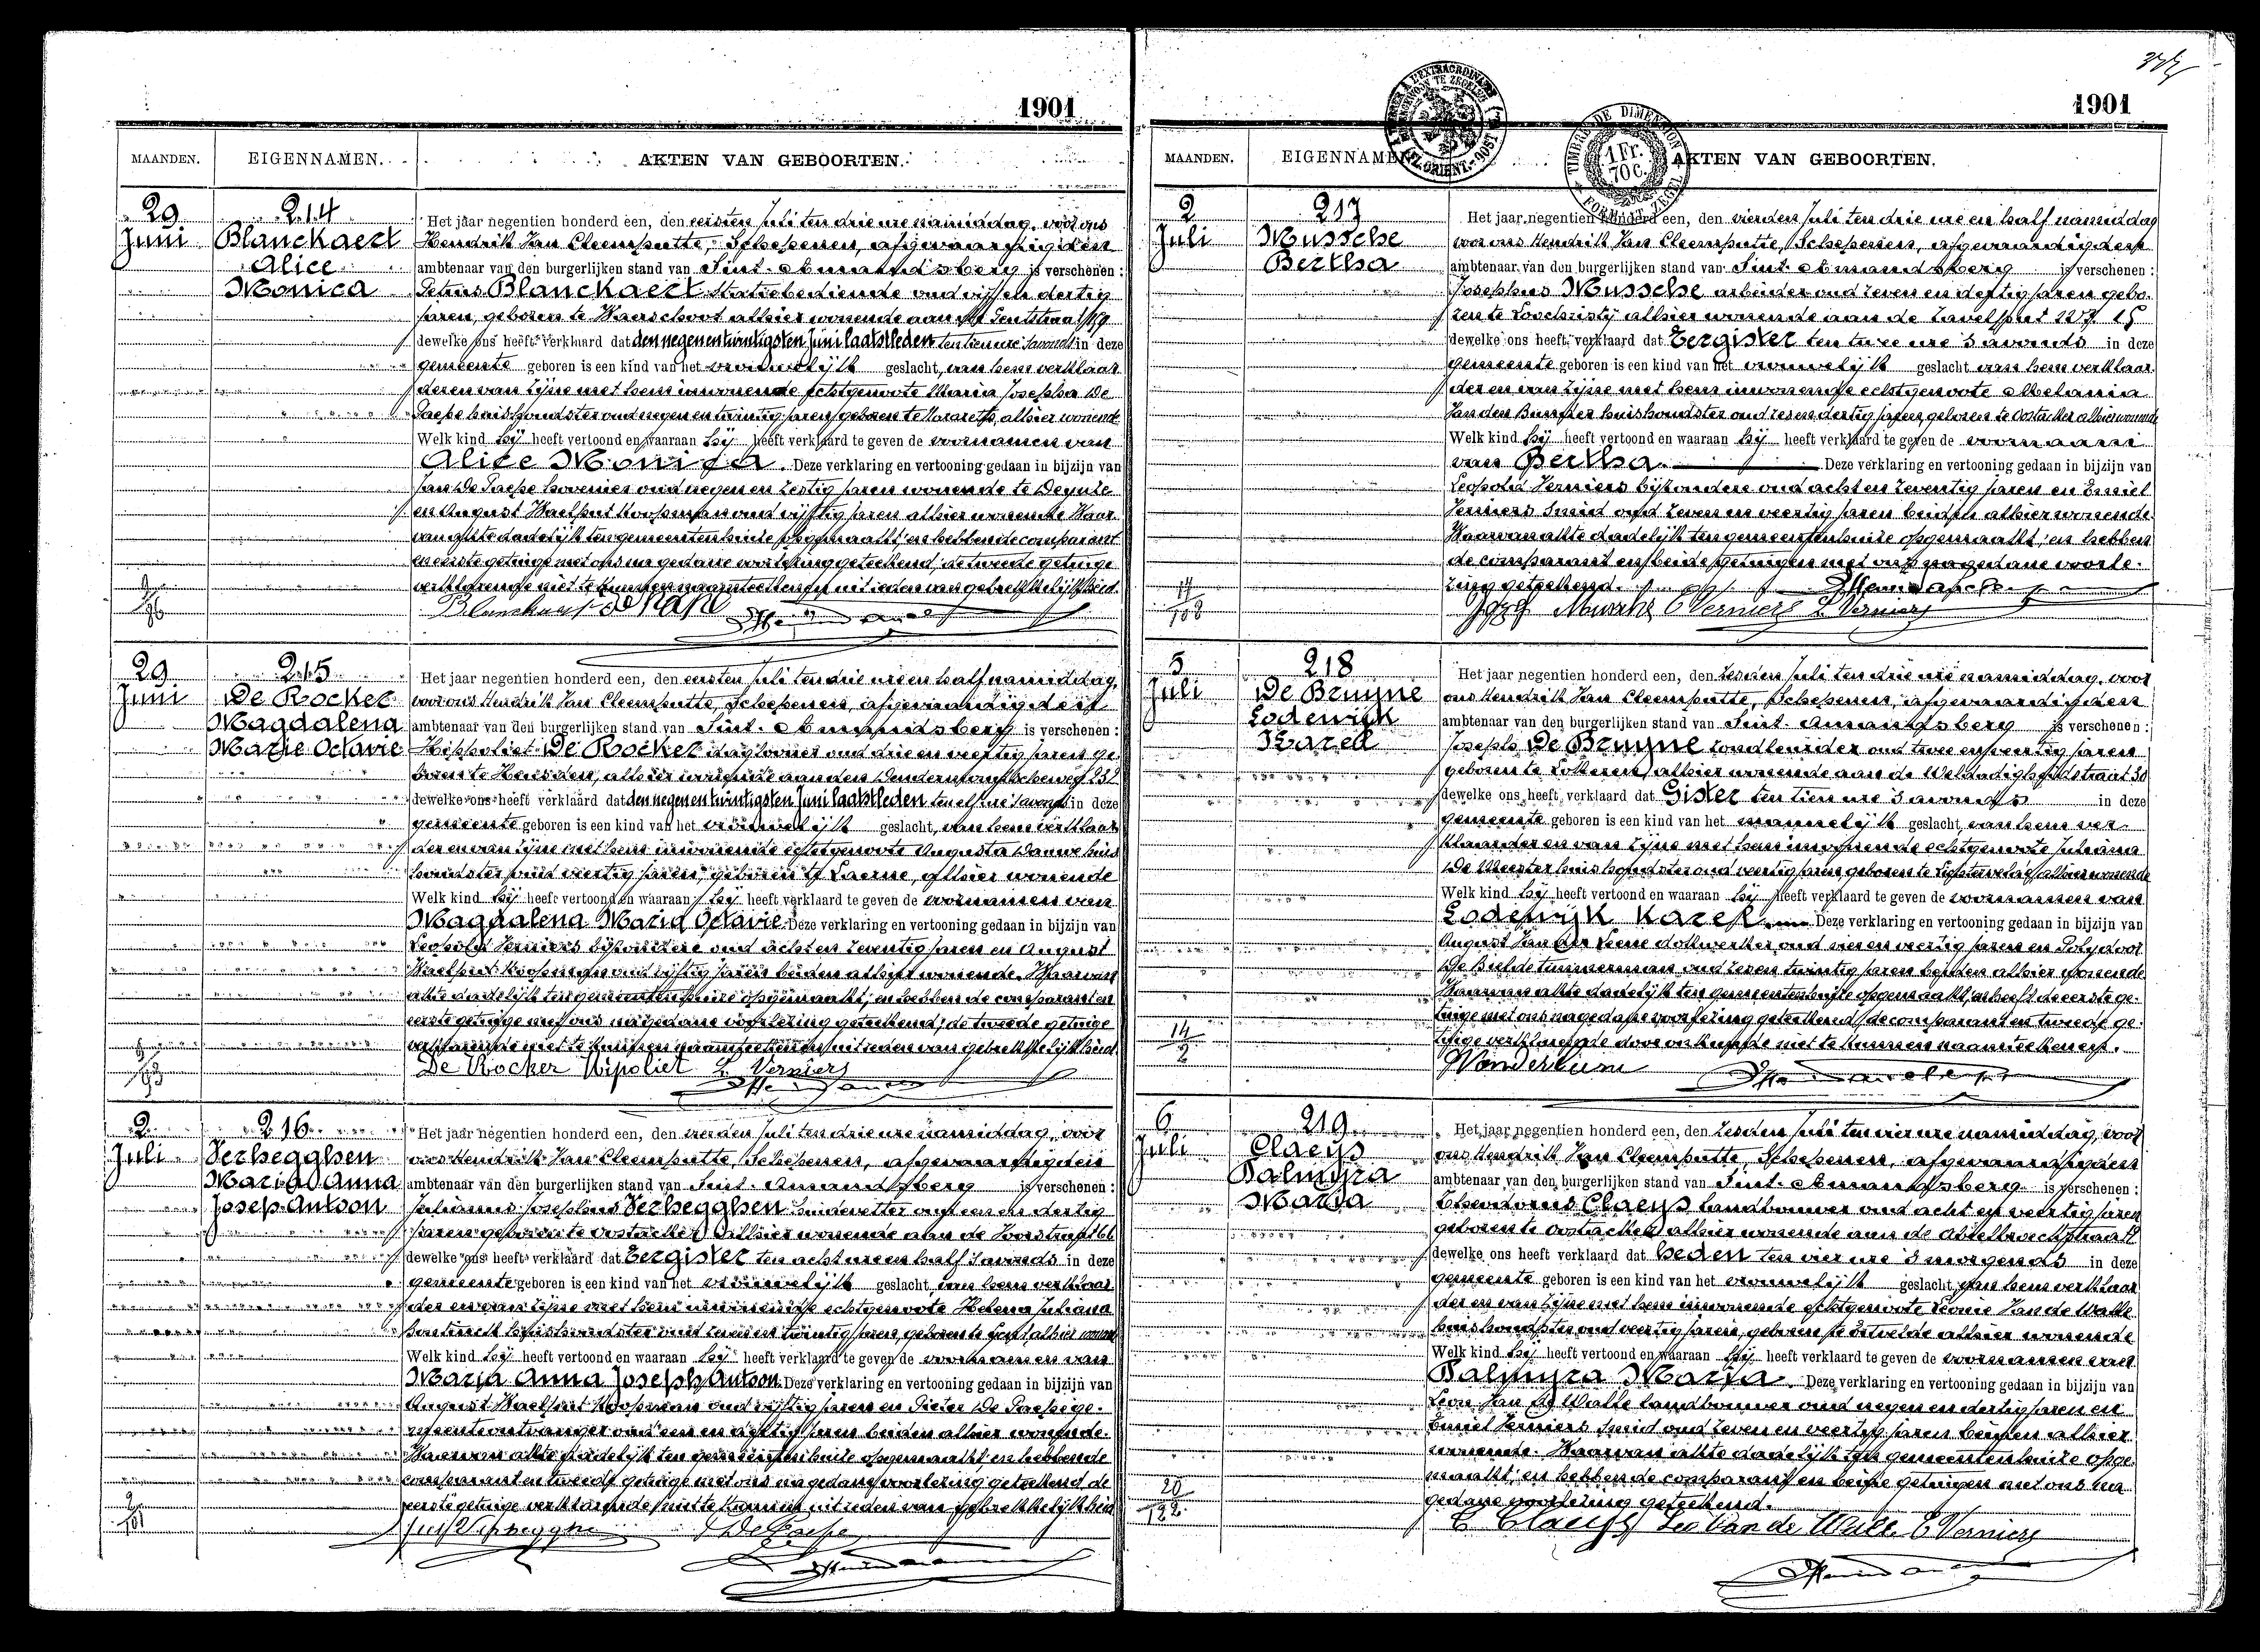 1901
MAANDEN. EIGENNAMEN. AKTEN VAN GEBOORTEN.
29 214 Het jaar negentien honderd een, den eersten Juli ten drie ure namiddag, voor ons
Juni Blanckaert Hendrik Jan Cleemputte, Schepenen, afgevaardigden
Alice ambtenaar van den burgerlijken stand van Sint-Amandsberg is verschenen:
Monica Petrus Blanckaert statiebediende oud vijf en dertig
jaren, geboren te Waerschoot alhier wonende aan
dewelke ons heeft verklaard dat den negen en twintigsten Juni laatstleden ten tien ure 's avonds in deze
gemeente geboren is een kind van het vrouwelijk geslacht, van hem verklaar
der en van zijne met hem inwonende echtgenoote Maria Josepha De
Paepe huishoudster oud negen en twintig jaren, geboren te Nazareth, alhier wonende
Welk kind hij heeft vertoond en waaraan hij heeft verklaard te geven de voornamen van
Alice Monica. Deze verklaring en vertooning gedaan in bijzijn van
Jan De Paepe hovenier oud negen en zestig jaren wonende te Deynze
en August Waelput koopman oud vijftig jaren alhier wonende Waar
van akte dadelijk ten gemeentenhuize opgemaakt, en hebben de comparant
en eerste getuige met ons na gedane voorlezing geteekend; de tweede getuige
verklarende niet te kunnen naamteekenen uit reden van gebrekkelijkheid.
29 215 Het jaar negentien honderd een, den eersten Juli ten drie ure en half namiddag,
Juni De Rocker voor ons Hendrik Jan Cleemputte, Schepenen, afgevaardigden
Magdalena ambtenaar van den burgerlijken stand van Sint-Amandsberg is verschenen:
Marie Octavie Hippoliet De Rocker daglooner oud drie en veertig jaren ge-
boren te Heusden, alhier wonende aan den Dendermondschen weg 232
dewelke ons heeft verklaard dat den negen en twintigsten Juni laatstleden ten elf ure 's avonds in deze
gemeente geboren is een kind van het vrouwelijk geslacht, van hem verklaar
der en van zijne met hem inwonende echtgenoote Augusta Dauwe huis
houdster oud veertig jaren, geboren te Laerne, alhier wonende
Welk kind hij heeft vertoond en waaraan hij heeft verklaard te geven de voornamen van
Magdalena Maria Octavie. Deze verklaring en vertooning gedaan in bijzijn van
Leopold Verniers bijzondere oud acht en zeventig jaren en August
Waelput koopman oud vijftig jaren beiden alhier wonende. Waarvan
akte dadelijk ten gemeentenhuize opgemaakt, en hebben de comparant en
eerste getuige met ons na gedane voorlezing geteekend; de tweede getuige
verklarende niet te kunnen naamteekenen uit reden van gebrekkelijkheid.
De Rocker Hipoliet L. Verniers
2 216 Het jaar negentien honderd een, den vierden Juli ten drie ure namiddag, voor
Juli Verhegghen ons Hendrik Jan Cleemputte, Schepenen, afgevaardigden
Maria Anna ambtenaar van den burgerlijken stand van Sint-Amandsberg is verschenen:
Joseph Antoon Julianus Josephus Verhegghen huidevetter oud een en dertig
jaren geboren te Oostacker alhier wonende aan de
dewelke ons heeft verklaard dat Eergister ten acht ure en half 's avonds in deze
gemeente geboren is een kind van het vrouwelijk geslacht van hem verklaar
der en van zijne met hem inwonende echtgenoote Helena Juliana
huishoudster oud twintig jaren, geboren te Gent alhier wonende
Welk kind hij heeft vertoond en waaraan hij heeft verklaard te geven de voornamen van
Maria Anna Joseph Antoon. Deze verklaring en vertooning gedaan in bijzijn van
August Waelput koopman oud vijftig jaren en Pieter De Paepe ge-
meenteontvanger oud een en jaren beiden alhier wonende.
Waarvan akte dadelijk ten gemeentenhuize opgemaakt, en hebben de
comparant en tweede getuige met ons na gedane voorlezing geteekend de
eerste getuige verklarende niet te kunnen uit reden van gebrekkelijkheid
1901
TIMBRE DE DIMENSION
1 Fr. 70 c.
MAANDEN. EIGENNAMEN. AKTEN VAN GEBOORTEN.
2 217 Het jaar negentien honderd een, den vierden Juli ten drie ure en half namiddag
Juli Mussche voor ons Hendrik Jan Cleemputte, Schepenen, afgevaardigden
Bertha ambtenaar van den burgerlijken stand van Sint-Amandsberg is verschenen:
Josephus Mussche arbeider oud zeven en dertig jaren gebo-
ren te Loochristy alhier wonende aan de
dewelke ons heeft verklaard dat Eergister ten twee ure 's avonds in deze
gemeente geboren is een kind van het vrouwelijk geslacht van hem verklaar
der en van zijne met hem inwonende echtgenoote Melania
Van den huishoudster oud dertig jaren, geboren te Oostacker alhier wonende
Welk kind hij heeft vertoond en waaraan hij heeft verklaard te geven de voornaam
van Bertha. Deze verklaring en vertooning gedaan in bijzijn van
Leopold Verniers bijzondere oud acht en zeventig jaren en Emiel
Verniers smid oud zeven en veertig jaren beiden alhier wonende.
Waarvan akte dadelijk ten gemeentenhuize opgemaakt, en hebben
de comparant en beide getuigen met ons na gedane voorle-
zing geteekend.
Mussche E Verniers L. Verniers
5 218 Het jaar negentien honderd een, den zesden Juli ten drie ure namiddag, voor
Juli De Bruyne ons Hendrik Jan Cleemputte, Schepenen, afgevaardigden
Lodewijk ambtenaar van den burgerlijken stand van Sint-Amandsberg is verschenen:
Karel Joseph De Bruyne oud twee en veertig jaren
geboren te Lokeren alhier wonende aan de Weldadigheidstraat 30
dewelke ons heeft verklaard dat Gister ten tien ure 's avonds in deze
gemeente geboren is een kind van het mannelijk geslacht van hem ver-
klaarder en van zijne met hem inwonende echtgenoote Juliana
De Meester huishoudster oud veertig jaren geboren te Lichtervelde alhier wonende
Welk kind hij heeft vertoond en waaraan hij heeft verklaard te geven de voornamen van
Lodewijk Karel. Deze verklaring en vertooning gedaan in bijzijn van
August Van der dokwerker oud en veertig jaren en Polydoor
De Bulde timmerman oud zeven twintig jaren beiden alhier wonende
Waarvan akte dadelijk ten gemeentenhuize opgemaakt, en heeft de eerste ge-
tuige met ons na gedane voorlezing geteekend; de comparant en tweede ge-
tuige verklarende door onkunde niet te kunnen naamteekenen.
6 219 Het jaar negentien honderd een, den zesden Juli ten vier ure namiddag, voor
Juli Claeys ons Hendrik Jan Cleemputte, Schepenen, afgevaardigden
Palmyra ambtenaar van den burgerlijken stand van Sint-Amandsberg is verschenen:
Maria Claeys landbouwer oud acht en veertig jaren
geboren te Oostacker alhier wonende aan de
dewelke ons heeft verklaard dat heden ten vier ure 's morgends in deze
gemeente geboren is een kind van het vrouwelijk geslacht, van hem verklaar
der en van zijne met hem inwonende echtgenoote Leonie Van de Walle
huishoudster oud veertig jaren, geboren te Ertvelde alhier wonende
Welk kind hij heeft vertoond en waaraan hij heeft verklaard te geven de voornamen van
Palmyra Maria. Deze verklaring en vertooning gedaan in bijzijn van
Leon Van De Walle landbouwer oud negen en dertig jaren en
Emiel Verniers smid oud zeven en veertig jaren beiden alhier
wonende. Waarvan akte dadelijk ten gemeentenhuize opge-
maakt, en hebben de comparant en beide getuigen met ons na
gedane voorlezing geteekend.
Claeys Leo Van de Walle E Verniers